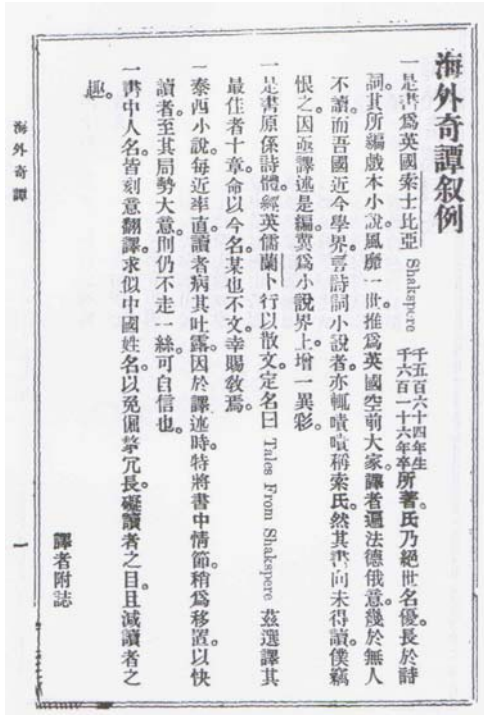 海外奇譚叙例
一是書爲英國索士比亞 Shakspere 千五百六十四年生
千六百一十六年卒
所著。氏乃絕世名優。長於詩
詞。其所編戲本小說。風靡一世。推爲英國空前大家。譯者遍法德俄意。幾於無人
不讀。而吾國近今學界。言詩詞小說者。亦輒嘖嘖稱索氏。然其書向未得讀。僕竊
恨之。因亟譯述是編。冀爲小說界上增一異彩。
一是書原係詩體。經英儒蘭卜行以散文。定名曰 Tales From Shakspere 茲選譯其
最佳者十章。命以今名。某也不文。幸賜敎焉。
一泰西小說。每近率直。讀者病其吐露。因於譯述時。特將書中情節。稍爲移置。以快
讀者。至其局勢大意。則仍不走一絲。可自信也。
一書中人名。皆刻意翻譯。求似中國姓名。以免冗長。礙讀者之目。且減讀者之
趣。
譯者附誌
海外奇譚
一